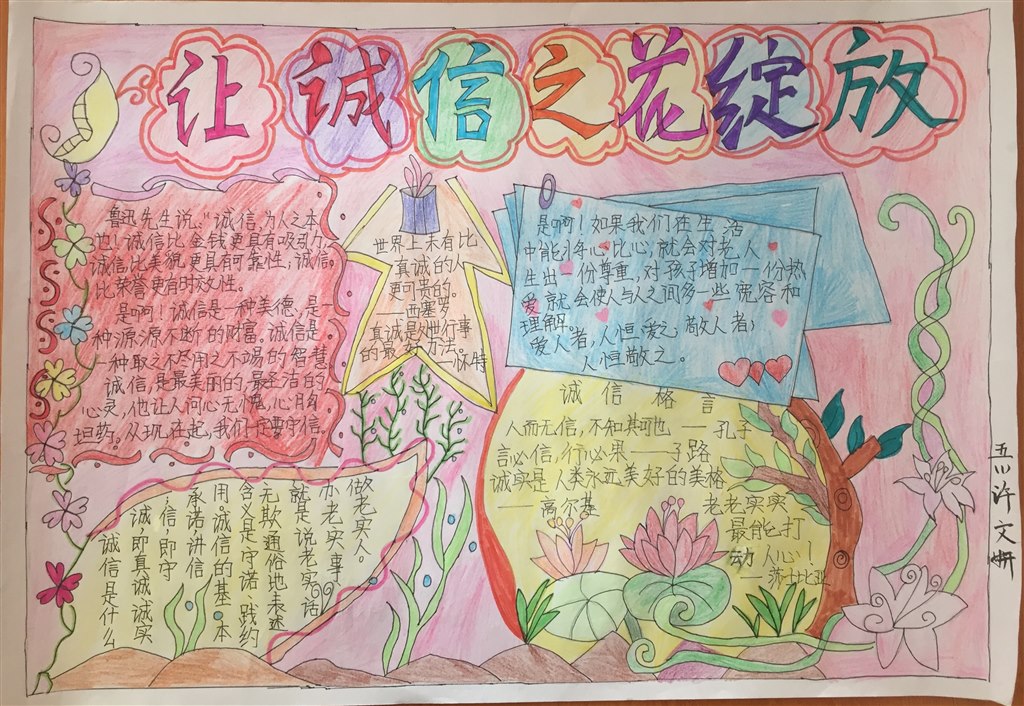 让诚信之花绽放
鲁迅先生说:“诚信为人之本
也!诚信比金钱更具有吸引力,
诚信比美貌更具有可靠性,诚信。
比荣誉更有时效性。
是啊!诚信是一种美德,是一
种源源不断的财富。诚信是
一种取之不尽用之不竭的智慧
诚信,是最美丽的、最圣洁的
心灵,他让人问心无愧,心胸
坦荡。从现在起,我们要守信。
世界上未有比
真诚的人
更可贵的。
——西塞罗
真诚是处世行事
的最好方法。
——怀特
是啊!如果我们在生活
中能将心比心,就会对老人
生出一份尊重,对孩子增加一份热
爱,就会使人与人之间多一些宽容和
理解。
爱人者,人恒爱之;敬人者;
人恒敬之。
诚信格言
人而无信,不知其可也——孔子
言必信,行必果——子路
诚实是人类永远美好的美格
——高尔基
老老实实
最能打
动人心!
——莎士比亚
做老实人。
办老实事,
就是说老实话
无欺,通俗地表述
含义是守诺、践约
用。诚信的基本
承诺、讲信
“信”即守
诚即真诚诚实
诚信是什么
五川许文妍